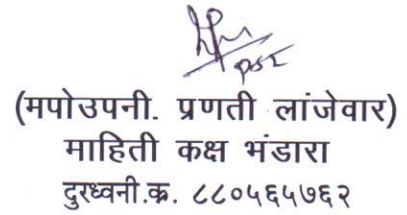 PSI
(मपोउपनी. प्रणती लांजेवार)
माहिती कक्ष भंडारा
दुरध्वनी.क्र. ८८०५६५७६२